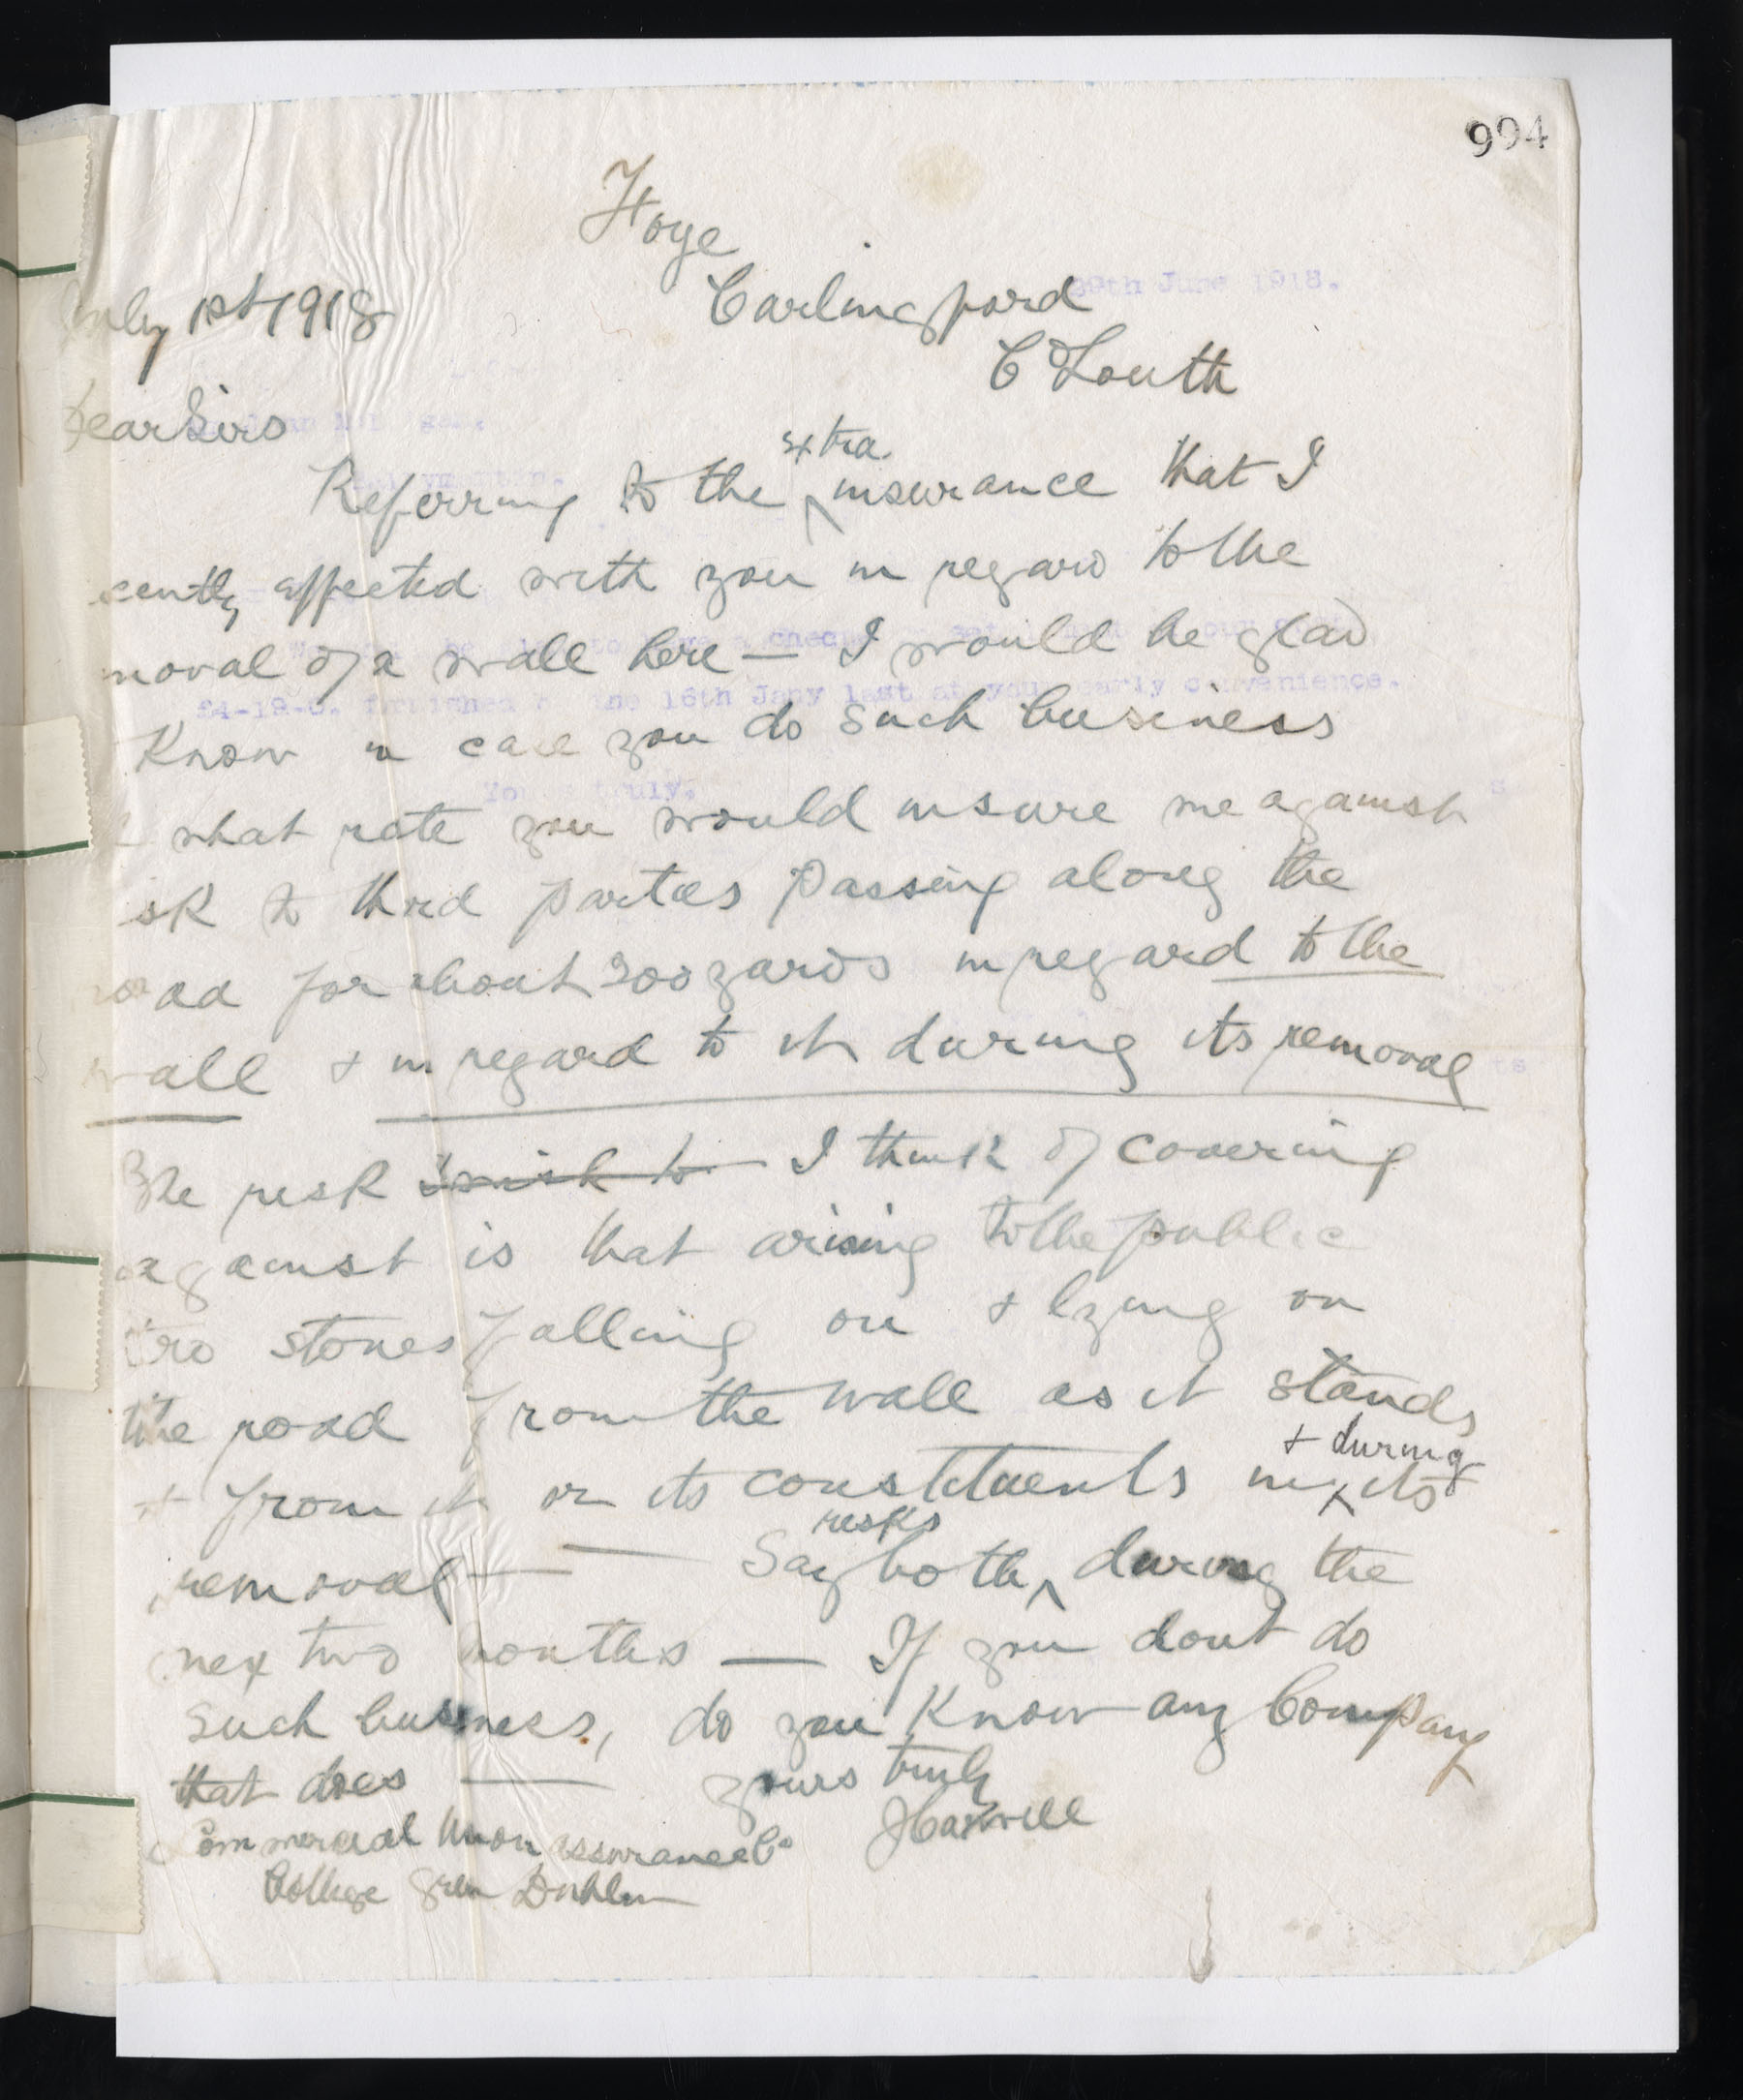 994
Foye
Carlingford
July 1st 1918
Co Louth
Dear Sirs
extra
Referring to the insurance that I
cently affected with you in regard to the
moval of a wall here — I would be glad
Know in case you do such business
what rate you would insure me against
isk to third parties passing along the
road for about 200 yards in regard to the
wall & in regard to it during its removal
The risk I wish to I think of covering
against is that arising to the public
fro stones falling on & lying on
the road from the wall as it stands
& during
& from it or its constituents in its
risks
removal — Say both during the
nex two months — If you dont do
such business, do you Know any Company
that does — yours truly
Commercial Union assurance Co
College Green Dublin
29th June 1918.
16th Jany last at your early convenience.